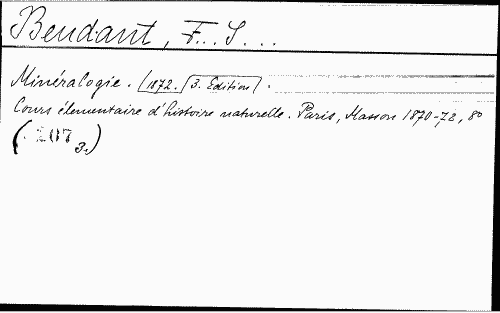 Beudant, F... S...
Minéralogie. (1872. (3. Edition).
Cours élementaire d'histoire naturelle. Paris, Masson 1870-72, 8º
(207 3.)